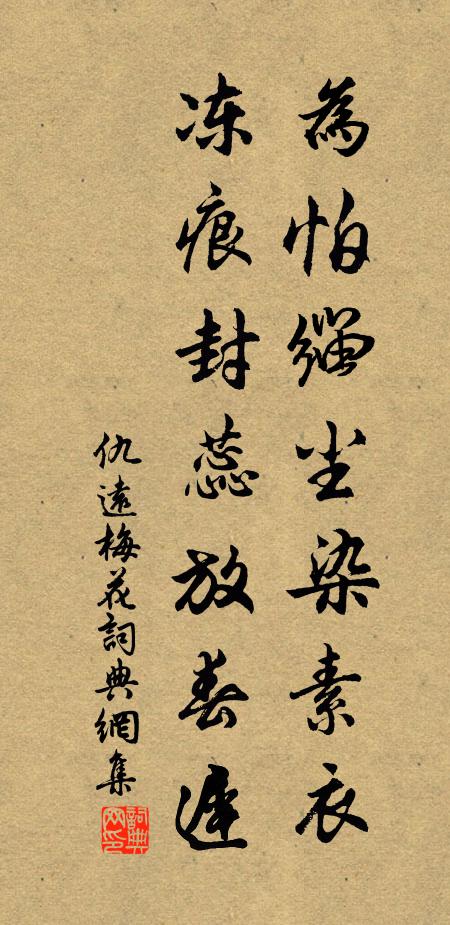 為怕緇尘染素衣
冻痕封蕊放春遲
仇遠梅花詞典網集
詞典網印